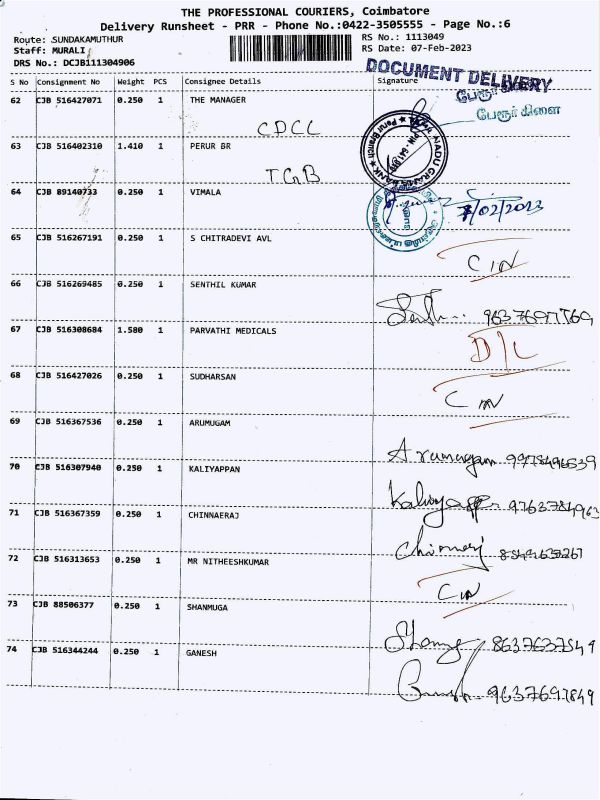 THE PROFESSIONAL COURIERS, Coimbatore
Delivery Runsheet - PRR - Phone No.:0422-3505555 - Page No.:6
Route: SUNDAKAMUTHUR RS No.: 1113049
Staff: MURALI RS Date: 07-Feb-2023
DRS No.: DCJB111304906
DOCUMENT DELIVERY
S No Consignment No Weight PCS Consignee Details Signature
பேரூர் கிளை
62 CJB 516427071 0.250 1 THE MANAGER
CDCC
63 CJB 516402310 1.410 1 PERUR BR
TGB
64 CJB 89140733 0.250 1 VIMALA
7/02/2023
65 CJB 516267191 0.250 1 S CHITRADEVI AVL
CIN
66 CJB 516269485 0.250 1 SENTHIL KUMAR
67 CJB 516308684 1.580 1 PARVATHI MEDICALS
D/L
68 CJB 516427026 0.250 1 SUDHARSAN
CIN
69 CJB 516367536 0.250 1 ARUMUGAM
Arumugam
70 CJB 516307940 0.250 1 KALIYAPPAN
71 CJB 516367359 0.250 1 CHINNAERAJ
72 CJB 516313653 0.250 1 MR NITHEESHKUMAR
CIN
73 CJB 88506377 0.250 1 SHANMUGA
8637637549
74 CJB 516344244 0.250 1 GANESH